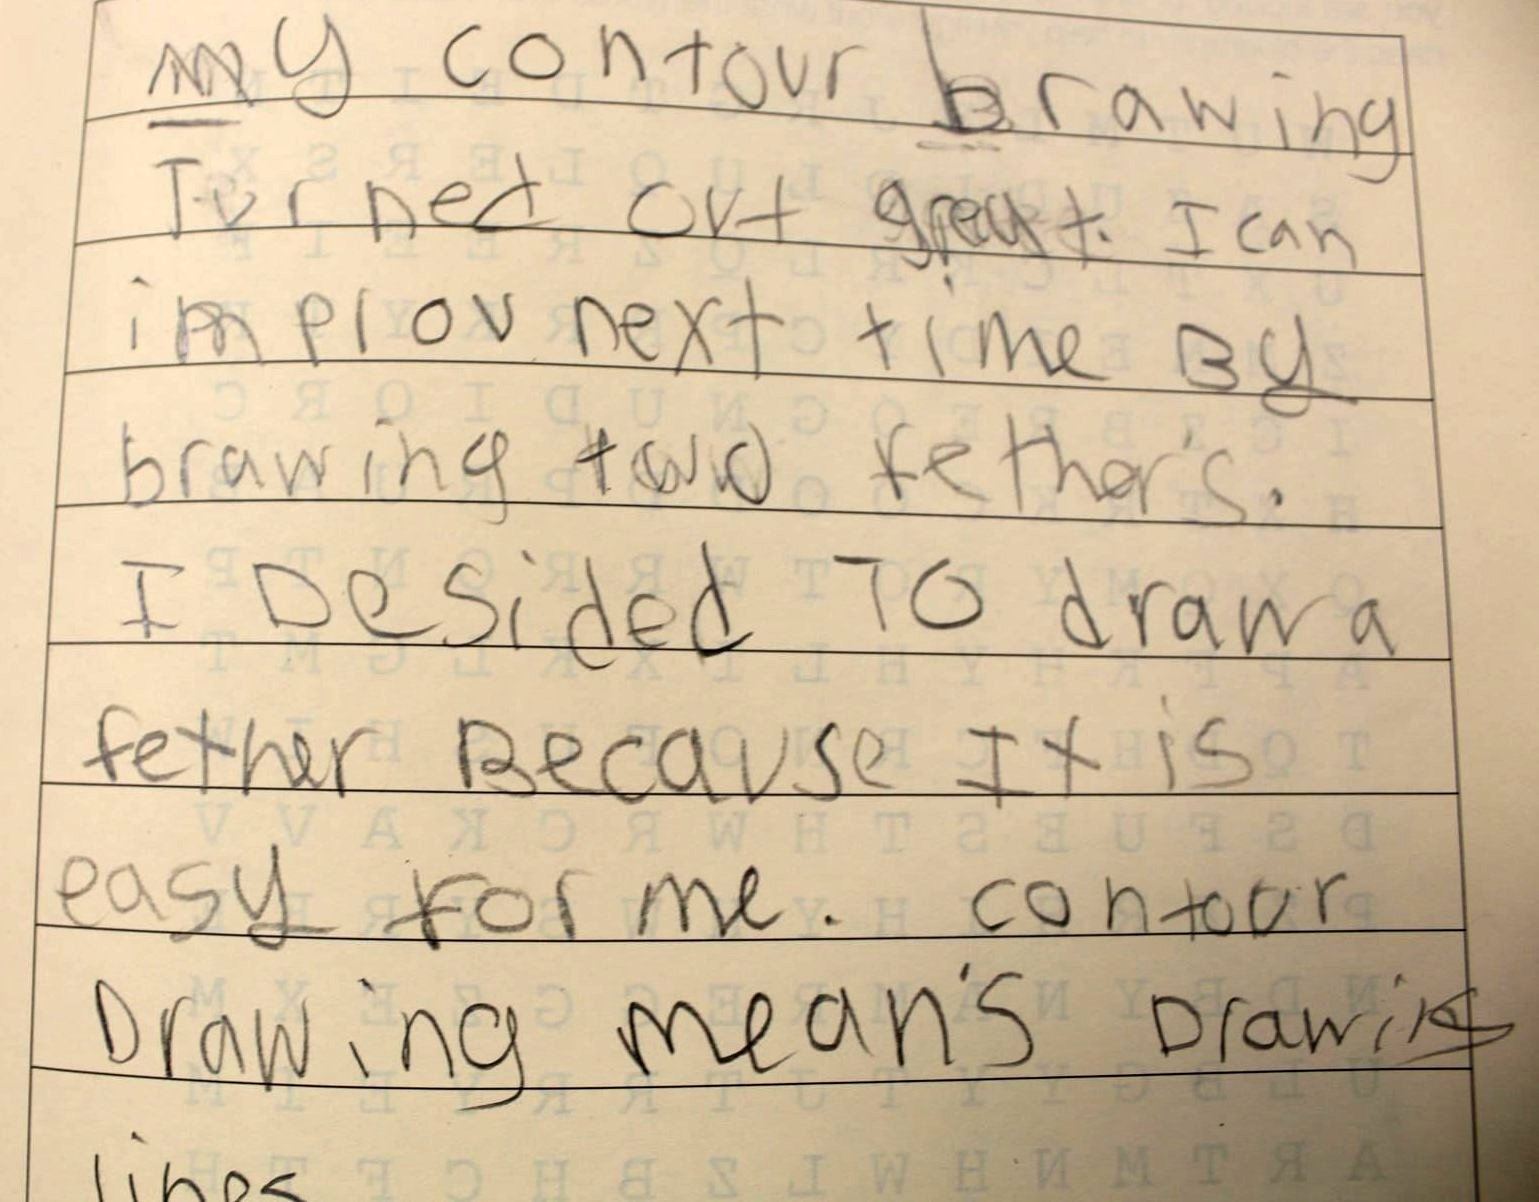 my contour brawing
Turned out great. I can
improv next time By
brawing two fether's.
I Desided To draw a
fether Because It is
easy for me. contour
Drawing mean's Drawing
lines